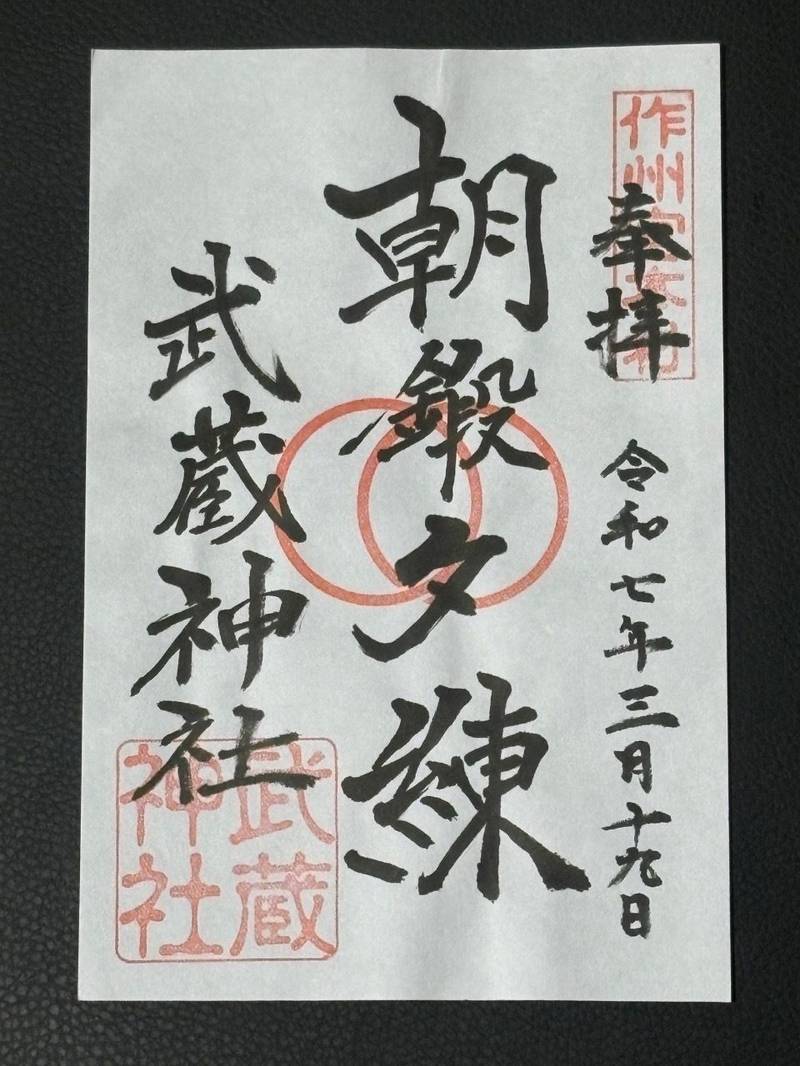 作州宮本村
奉拝
令和七年三月十九日
朝鍛夕練
武蔵神社
武蔵
神社